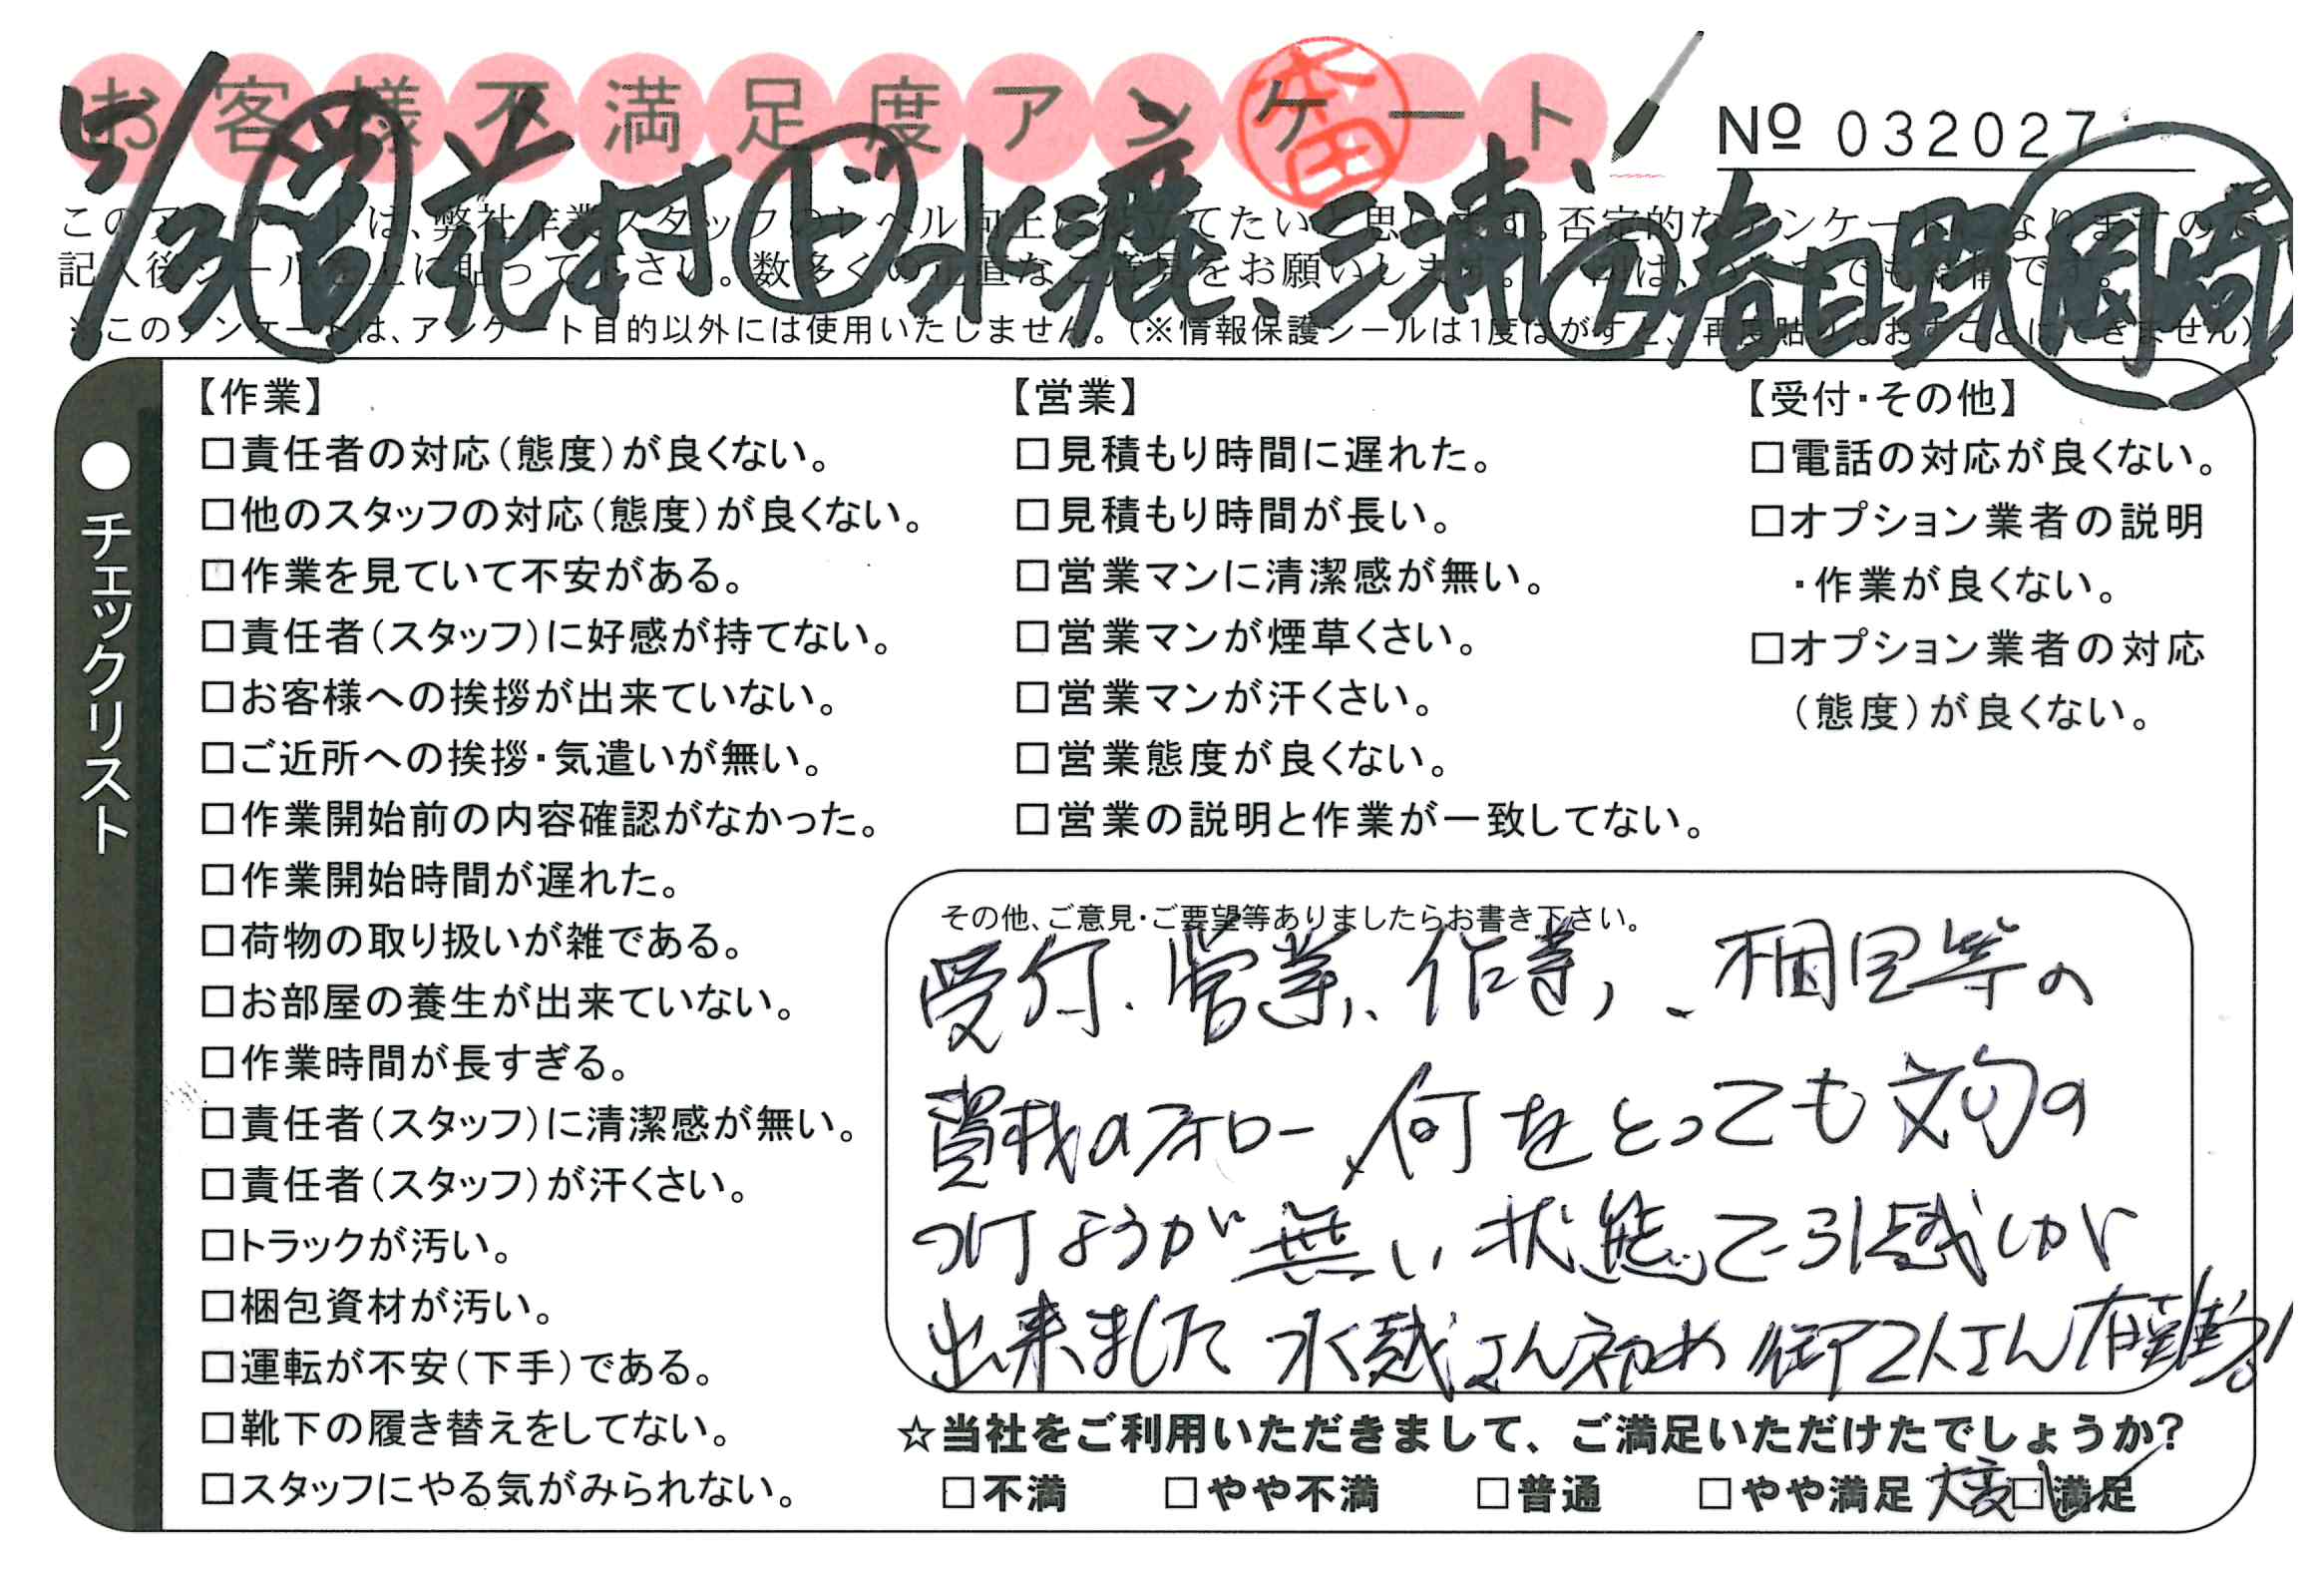 お客様不満足度アンケート
本田
№ 032027
5/3 営 花村 ド 水漉、三浦 春日野 岡崎
このアンケートは、弊社作業スタッフのレベル向上に役立てたいと思います。否定的なアンケートになりますので
記入後シールを上に貼って下さい。数多くの正直なご意見をお願いします。
※このアンケートは、アンケート目的以外には使用いたしません。(※情報保護シールは1度はがすと、再度貼りなおすことはできません)
●チェックリスト
【作業】
□責任者の対応(態度)が良くない。
□他のスタッフの対応(態度)が良くない。
□作業を見ていて不安がある。
□責任者(スタッフ)に好感が持てない。
□お客様への挨拶が出来ていない。
□ご近所への挨拶・気遣いが無い。
□作業開始前の内容確認がなかった。
□作業開始時間が遅れた。
□荷物の取り扱いが雑である。
□お部屋の養生が出来ていない。
□作業時間が長すぎる。
□責任者(スタッフ)に清潔感が無い。
□責任者(スタッフ)が汗くさい。
□トラックが汚い。
□梱包資材が汚い。
□運転が不安(下手)である。
□靴下の履き替えをしてない。
□スタッフにやる気がみられない。
【営業】
□見積もり時間に遅れた。
□見積もり時間が長い。
□営業マンに清潔感が無い。
□営業マンが煙草くさい。
□営業マンが汗くさい。
□営業態度が良くない。
□営業の説明と作業が一致してない。
【受付・その他】
□電話の対応が良くない。
□オプション業者の説明
・作業が良くない。
□オプション業者の対応
(態度)が良くない。
その他、ご意見・ご要望等ありましたらお書き下さい。
受付、営業、作業、梱包等の
資材のフォロー、何をとっても文句の
つけようが無い状態で引越しが
出来ました 水越さん初め御2人さん有難う!
☆当社をご利用いただきまして、ご満足いただけたでしょうか?
□不満 □やや不満 □普通 □やや満足 大変□満足